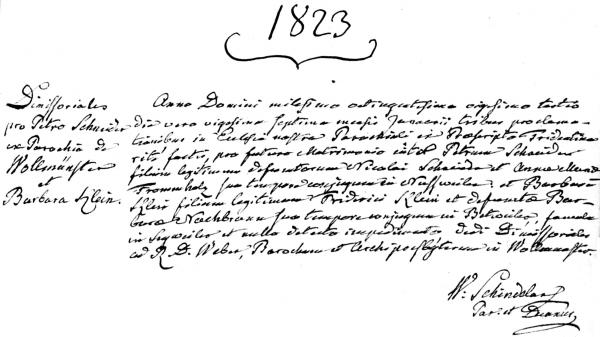 1823
Dimissoriales
pro Petro Schneider
ex Parochia de
Wollmünster
et
Barbara Klein.
Anno Domini milesimo octingentesimo vigesimo tertio
die vero vigesima septima mensis Januarii tribus proclama
tionibus in Eclesia nostra Parochiali ex Praescripto Tridentino
rite factis, pro futuro Matrimonio inter Petrum Schneider
filium legitimum defunctorum Nicolai Schneider et Annae Mariae
Frommholz suo tempore conjugum in Nassweiler, et Barbaram
Klein filiam legitimam Friderici Klein et defunctae Bar
barae Nachbrunn suo tempore conjugum in Betweiler, famula
in Segweiler et nullo detecto impedimento dedi Dimissoriales
ad R. D. Weber, Parochum et Archipresbyterum in Wollmunster.
W. Schindelar
Par: et Decanus